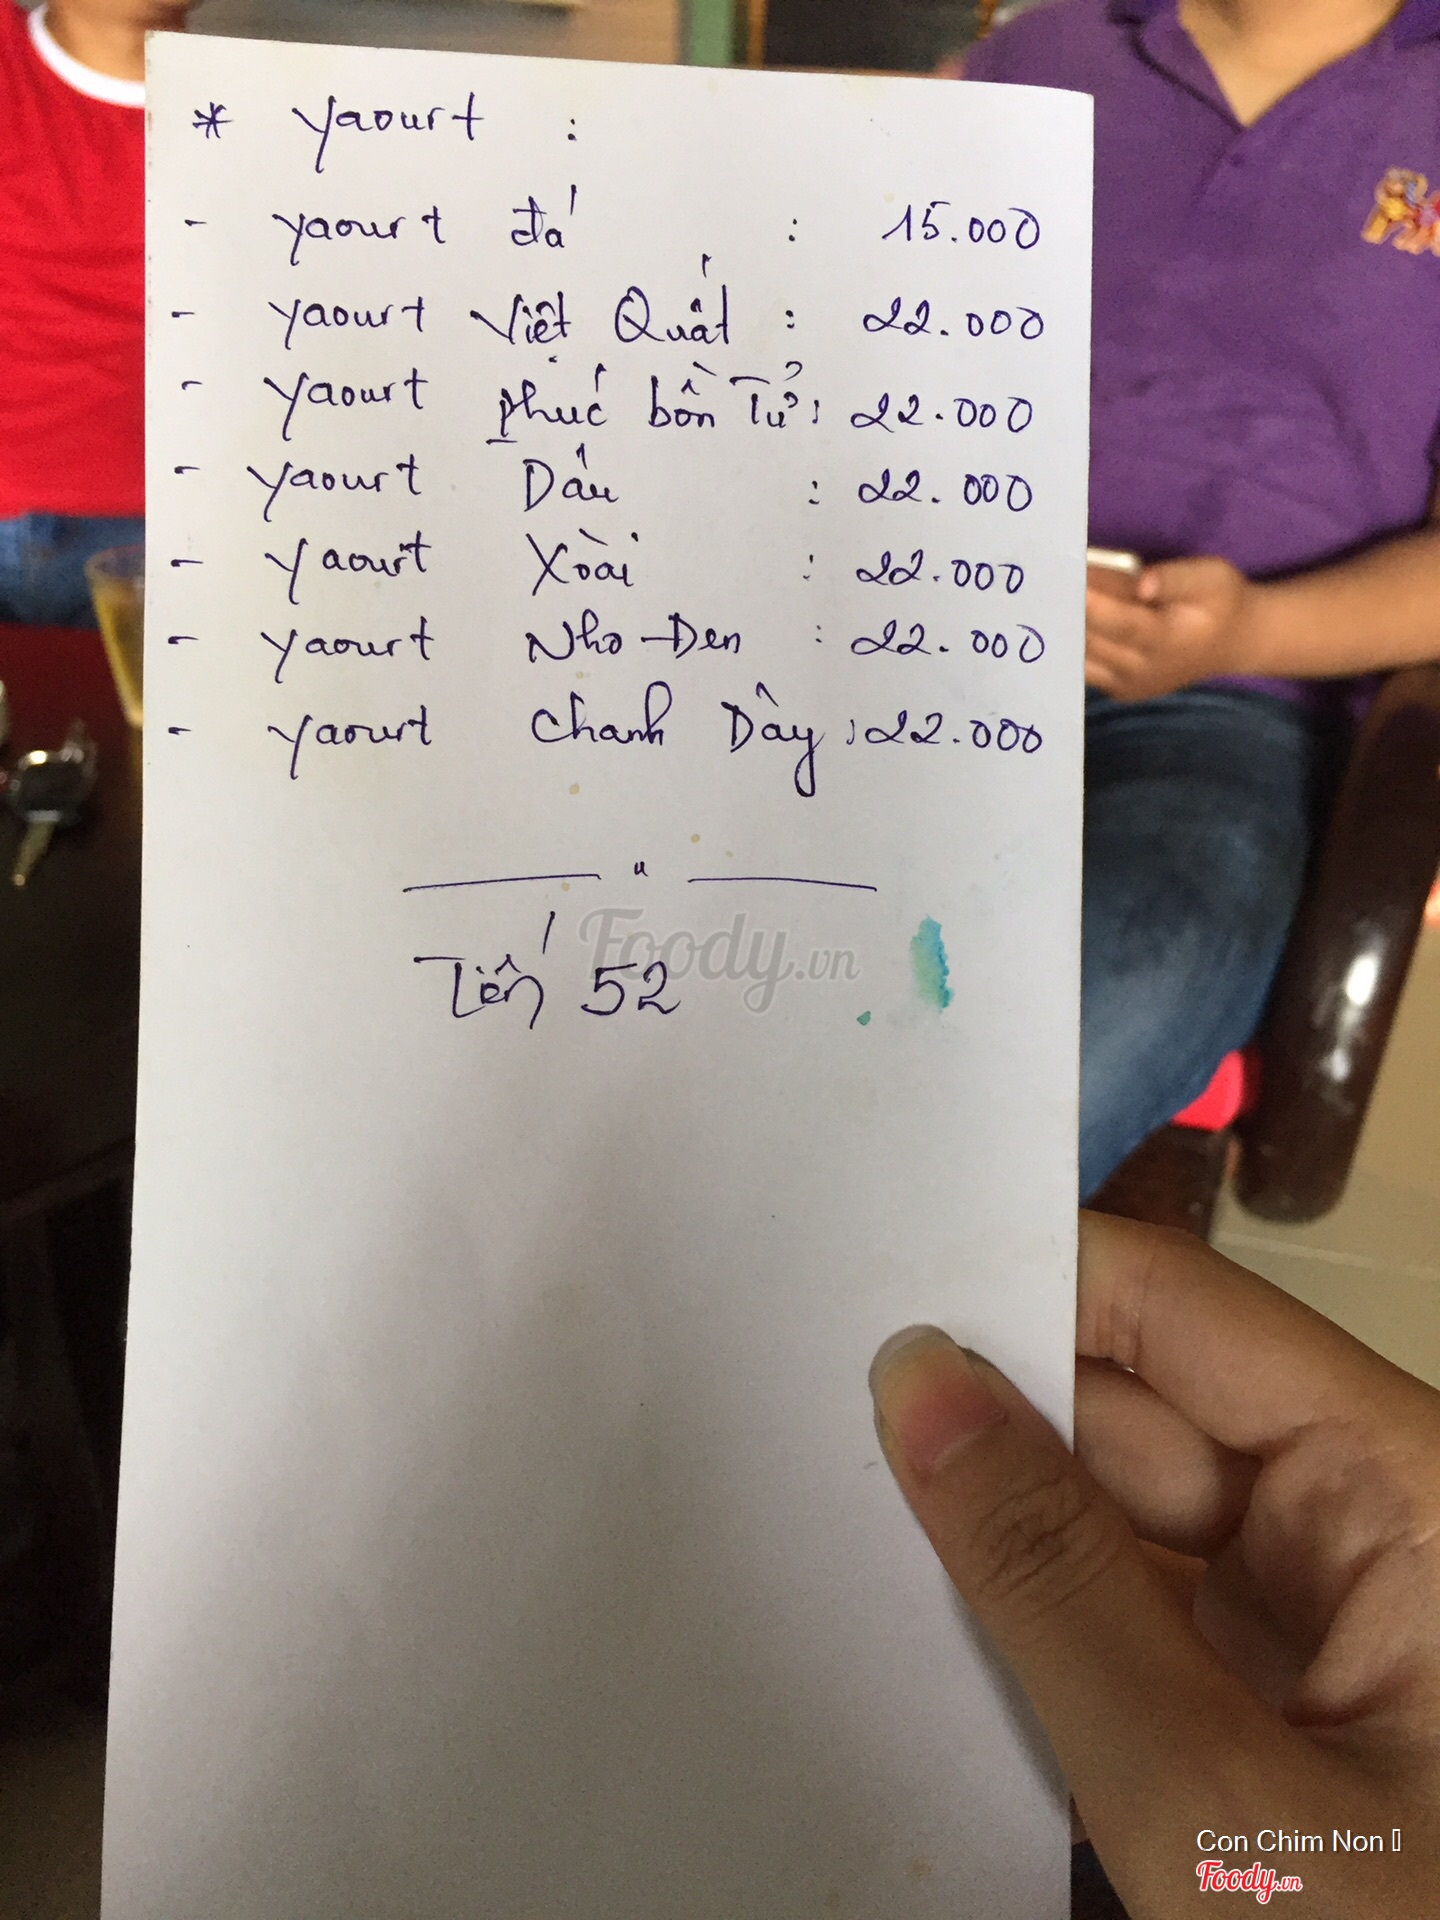 * Yaourt :
- Yaourt đá : 15.000
- Yaourt Việt Quất : 22.000
- Yaourt phúc bồn Tử : 22.000
- Yaourt Dâu : 22.000
- Yaourt Xoài : 22.000
- Yaourt Nho Đen : 22.000
- Yaourt Chanh Dây : 22.000
Tiến 52
Foody.vn
Con Chim Non
Foody.vn